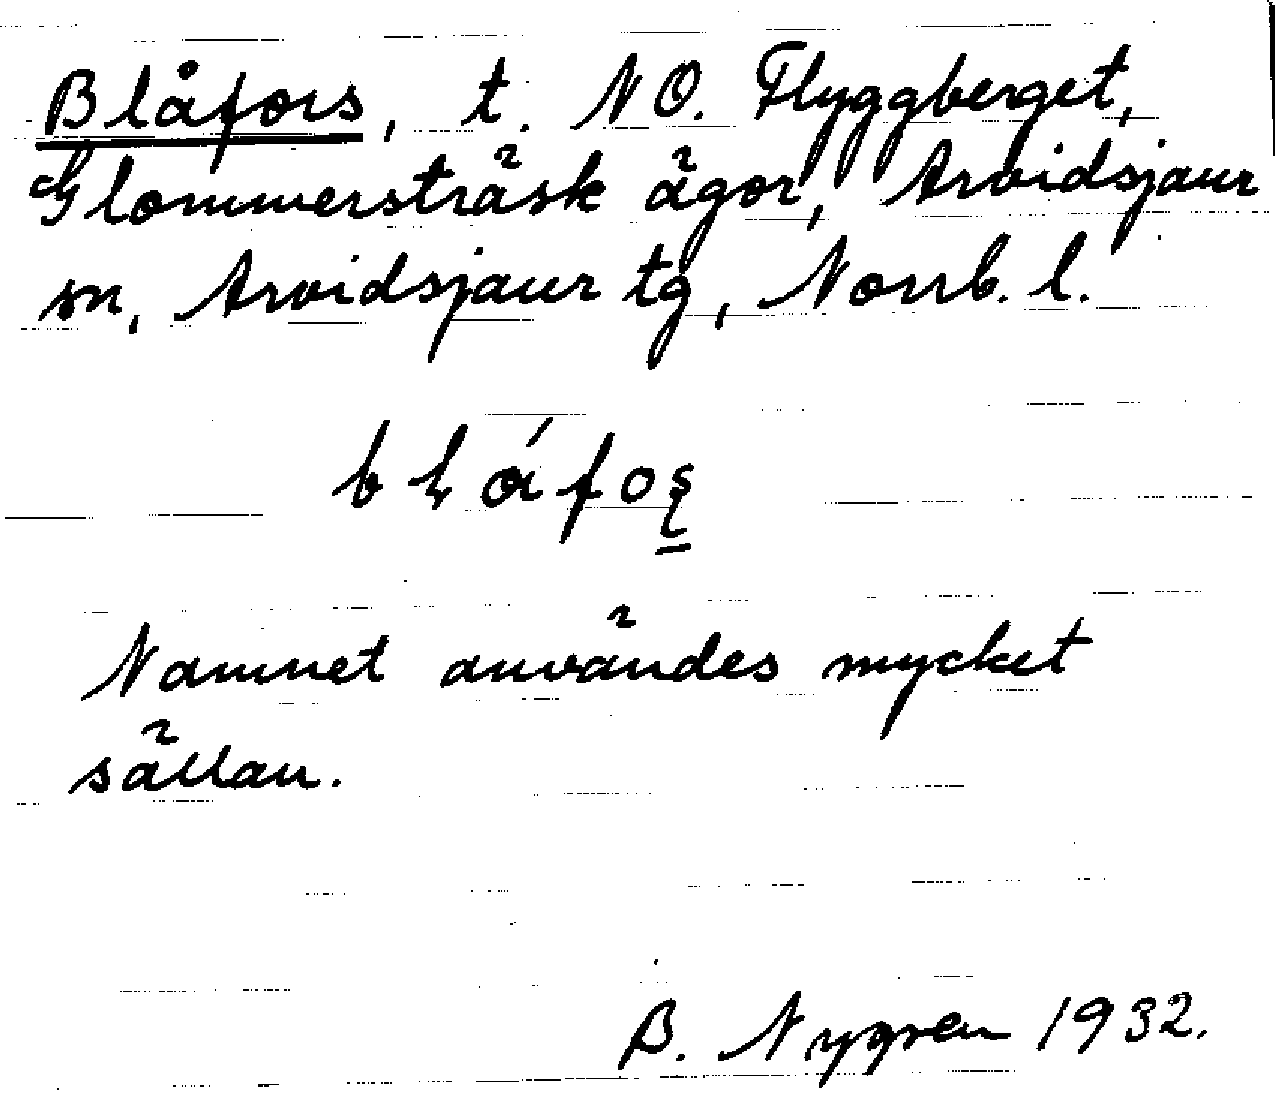 Blåfors, t. NO. Flyggberget,
Glommersträsk ägor, Arvidsjaur
sn, Arvidsjaur tg, Norrb. l.
Namnet användes mycket
sällan.
B. Nygren 1932.